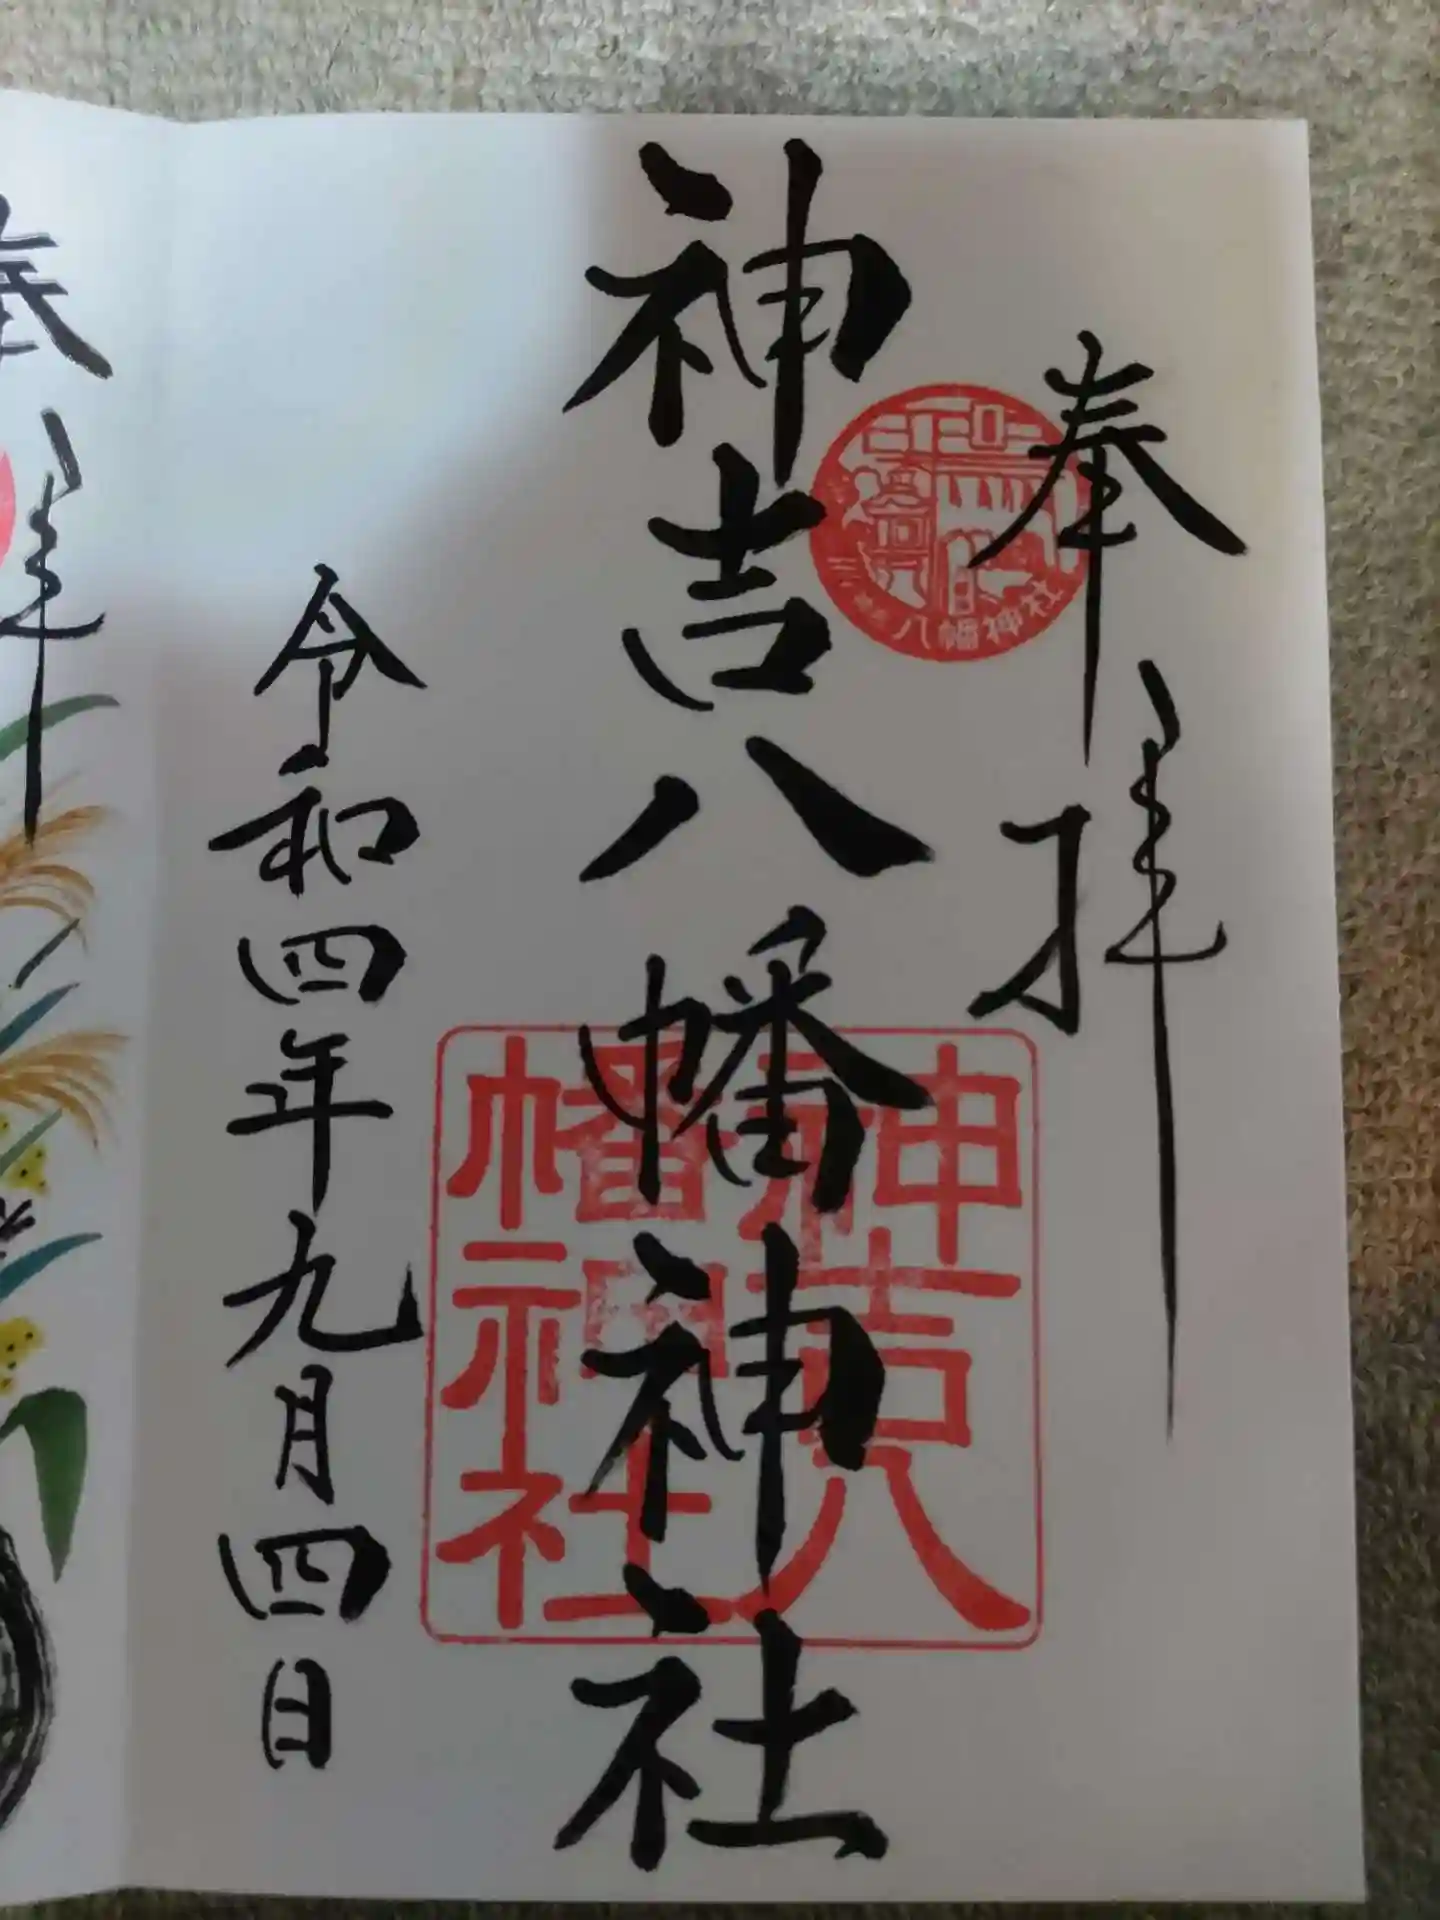 奉拝
八幡神社
神吉八幡神社
神吉八
幡神社
令和四年九月四日
奉拝